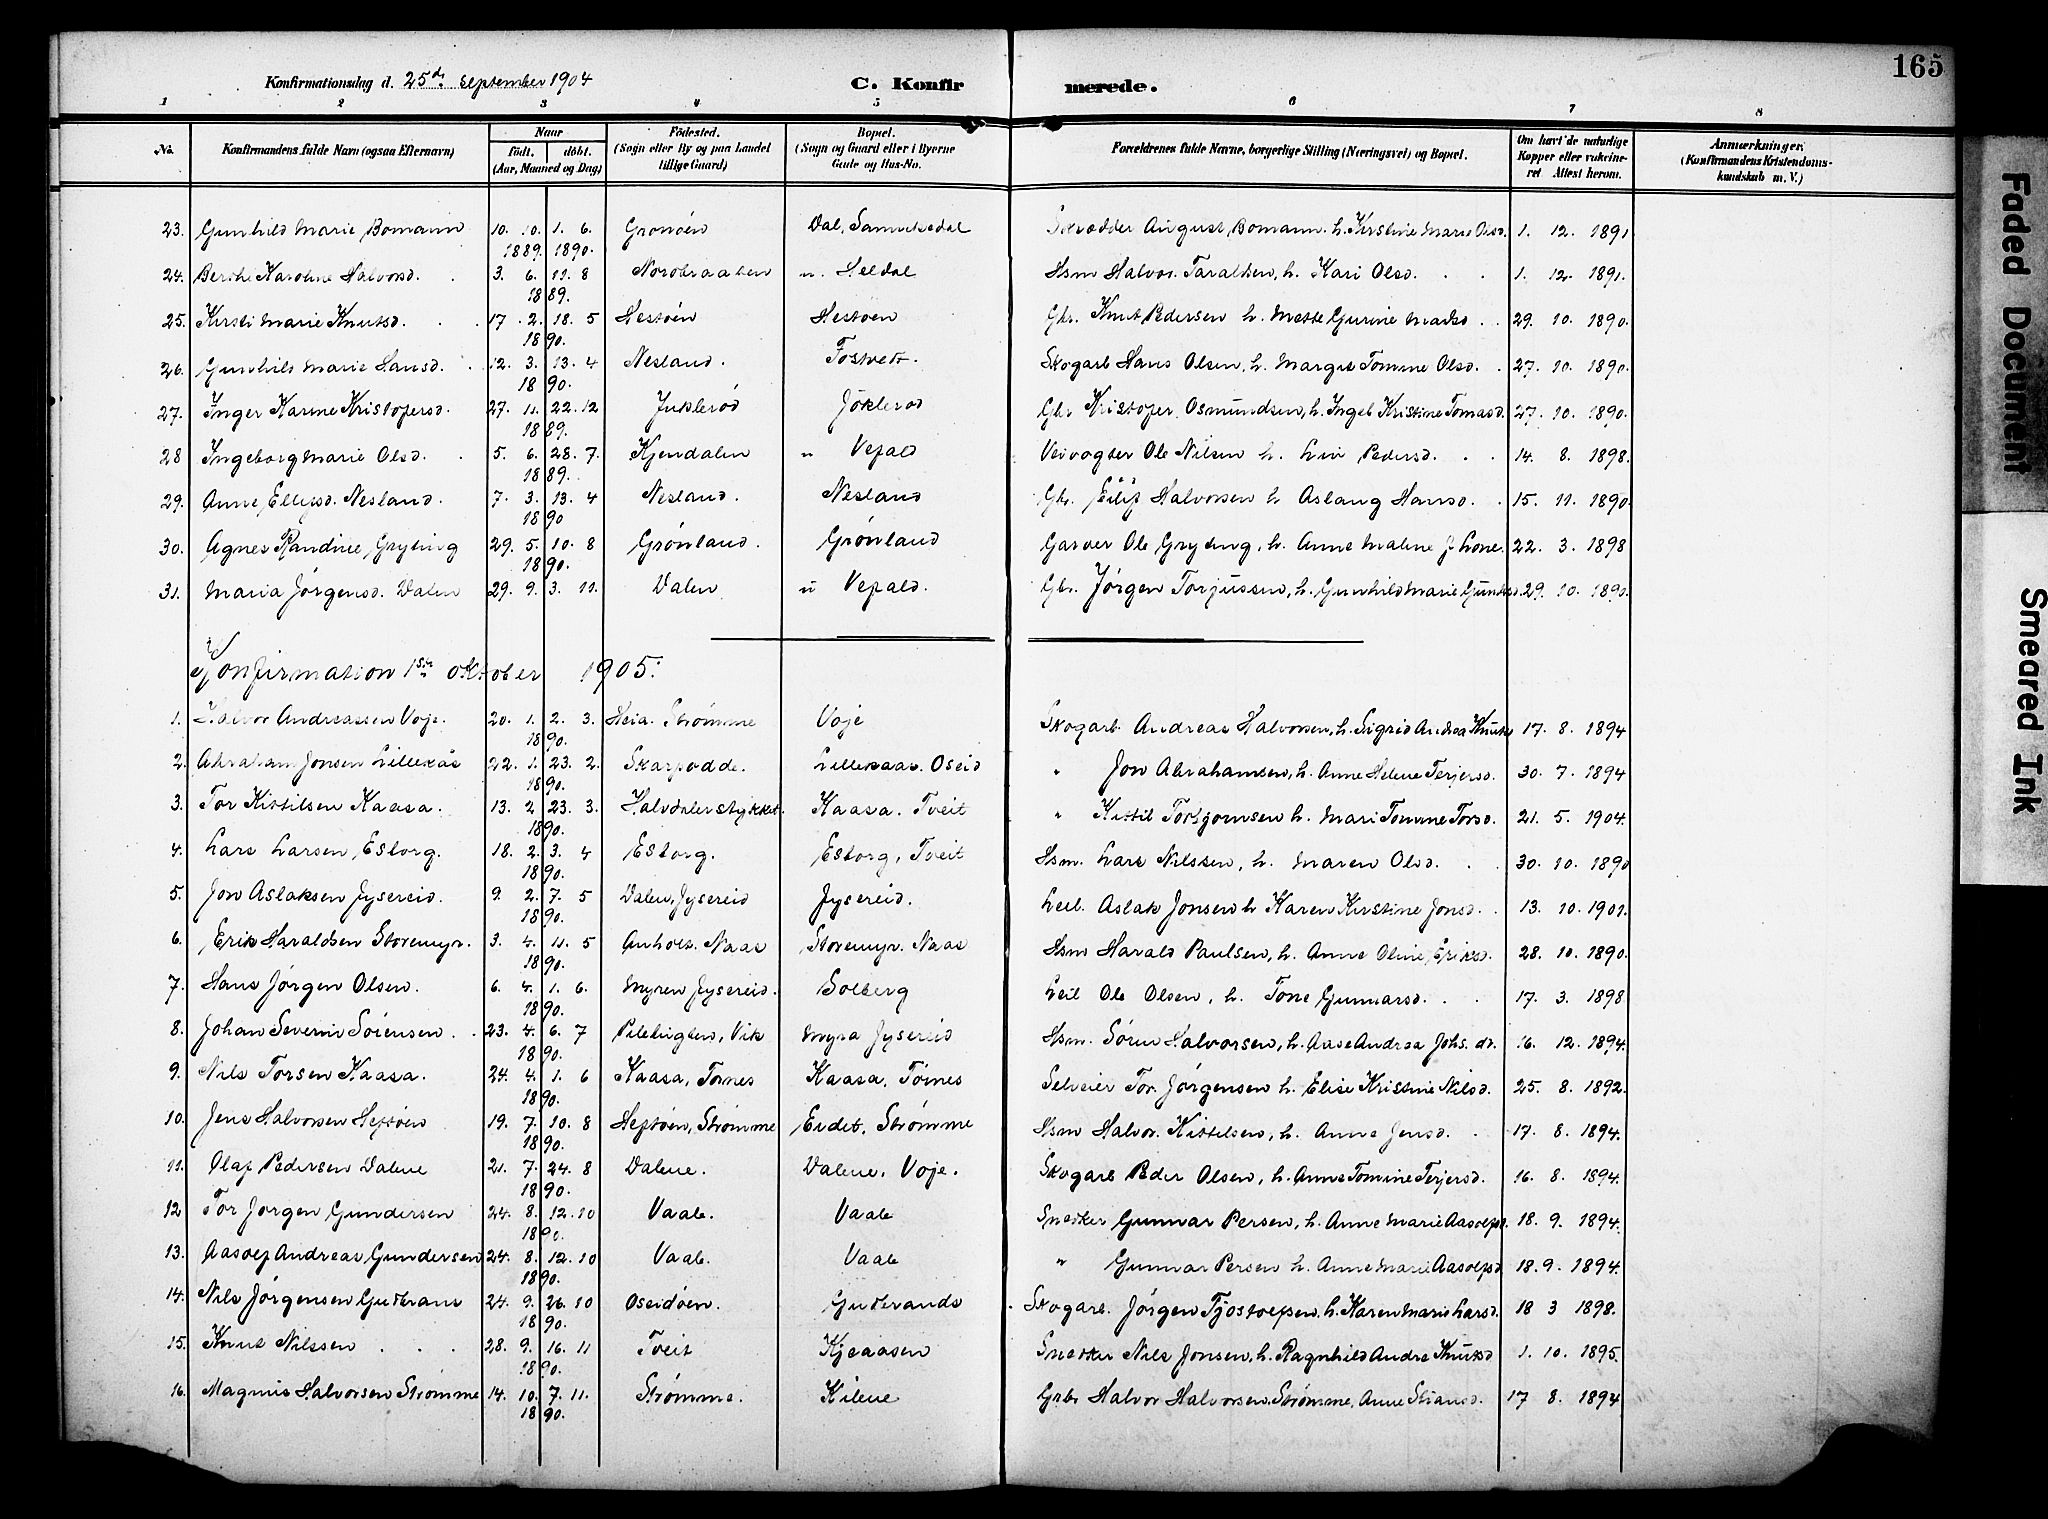 165
Konfirmationsdag d. 25de September 1904 C. Konfirmerede.
1 2 3 4 5 6 7 8
No. Konfirmandens fulde Navn (ogsaa Efternavn) Naar født. døbt. (Aar, Maaned og Dag) Födested. (Sogn eller By og paa Landet tillige Gaard) Bopæl. (Sogn og Gaard eller i Byerne Gade og Hus-No. Forældrenes fulde Navne, borgerlige Stilling (Næringsvei) og Bopæl. Om havt de naturlige Kopper eller vakcineret Attest herom. Anmærkninger. (Konfirmandens Kristendomskundskab m. V.)
23. Gunhild Marie Bomann 10. 10. 1. 6. Gronøen Dal, Skrædder August Bomann. h. Kirstine Marie Olsd. 1. 12. 1891
1889. 1890.
24. Berthe Karoline Halvorsd. 3. 6. 11. 8 Nordbraaten " Heldal Hsm Halvor Taraldsen, h. Kari Olsd. 1. 12. 1891.
1889.
25. Kirsti Marie Knutsd. 17. 2. 18. 5 Hestøen Hestøen Gbr. Knut Pedersen h. Mette Gurine 29. 10. 1890.
1890.
26. Gunhild Marie Hansd. 12. 3. 13. 4 Nesland. Skogarb Hans Olsen, h. Margit Tomine Olsd. 27. 10. 1890.
1890.
27. Inger Karine Kristofersd. 27. 11. 22. 12 Juklerød Jøklerød Gbr Kristofer Osmundsen, h. Ingeb Kristine Tomasd. 27. 10. 1890.
1889.
28 Ingeborg Marie Olsd. 5. 6. 28. 7. Kjendalen " Vefald Veivogter Ole Nilsen h. Liv Pedersd. 14. 8. 1898.
1889.
29. Anne Ellefsd. Nesland. 7. 3. 13. 4 Nesland. Nesland Gbr. Eilif Halvorsen h Aslaug Hansd. 15. 11. 1890.
1890
30. Agnes Randine Gryting 29. 5. 10. 8 Grønland. Grønland Garver Ole Gryting, h. Anne Maline 22. 3. 1898
1890.
31. Maria Jørgensd. Dalen 29. 9. 3. 11. Dalen " Vefald. Gbr. Jørgen Torjussen, h. Gunhild Marie 29. 10. 1890.
Konfirmation 1ste oktober 1905:
1. Halvor Andreassen Voje. 20. 1. 2. 3. Heia. Strømme Voje Skogarb. Andreas Halvorsen, h. Sigrid Andrea Knutsd 17. 8. 1894
1890.
2. Abraham Jonsen Lillekås 22. 1. 23. 2. Skarpodde. Lillekaas. Oseid " Jon Abrahamsen, h. Anne Helene Terjersd. 30. 7. 1894
1890.
3. Tor Kittilsen Kaasa. 13. 2 23. 3. Halvdalerstykket Kaasa. Tveit " Kittil Torbjornsen h. Mari Tomine Torsd. 21. 5. 1904.
1890.
4. Lars Larsen Esborg. 18. 2. 3. 4 Esborg. Esborg, Tveit Hsm. Lars Nilssen, h. Maren Olsd. 30. 10. 1890
1890.
5. Jon Aslaksen Jysereid. 9. 2. 7. 5 Dalen, Jysereid Jysereid. Leil. Aslak Jonsen h Karen Kirstine Jonsd. 13. 10. 1901.
1890.
6. Erik Haraldsen Storemyr. 3. 4. 11. 5 Anholt. Naas Storemyr. Naas Hsm Harald Paulsen, h. Anne Oline Eriksd. 28. 10. 1890.
1890.
7. Hans Jørgen Olsen. 6. 4. 1. 6. Myren Jysereid. Solberg Leil Ole Olsen, h. Tone Gunnarsd. 17. 3. 1898
1890.
8. Johan Severin Sörensen. 23. 4. 6. 7 Vik Myra Jysereid Hsm. Sörn Halvorsen, h. Aase Andrea Johs. dt. 16. 12. 1894.
1890.
9. Nils Torsen Kaasa. 24. 4. 1. 6 Kaasa, Tornes Kaasa. Törnes Selveier Tor. Jørgensen h. Elise Kristine Nilsd. 25. 8. 1892.
1890.
10. Jens Halvorsen Heftøen 19. 7. 10. 8 Heftøen, Strømme Eidet. Strømme Hsm Halvor. Kittilsen, h. Anne Jensd. 17. 8. 1894.
1890.
11. Olaf Pedersen Dalene 21. 7. 24. 8 Dalene. Dalene. Voje. Skogarb Peder Olsen, h. Anne Tomine Terjersd. 16. 8. 1894.
1890.
12 Tor Jørgen Gundersen 24. 8. 12. 10 Vaab. Vaab Snedker Gunnar Persen, h. Anne Marie Aasolfsd. 18. 9. 1894.
1890.
13. Aasolf Andreas Gundersen 24. 8. 12. 10 Vaab. Vaab " Gunnar Persen h. Anne Marie Aasolfsd 18. 9. 1894.
1890.
14. Nils Jørgensen Gudbrans 24. 9. 26. 10 Oseidøen. Gudbrands Skogarb. Jørgen Tjostolfsen, h. Karen Marie Larsd. 18 3 1898.
1890.
15. Knut Nilssen 28. 9. 16. 11 Tveit Kjeaasen Snedker Nils Jonsen, h. Ragnhild Andre Knutsd 1. 10. 1895.
1890.
16. Magnus Halvorsen Strømme 14. 10. 7. 11. Strømme. Kilene Grbr Halvor Halvorsen Strømme, Anne Stiansd. 17 8. 1894
1890.
Faded Document
Smeared Ink